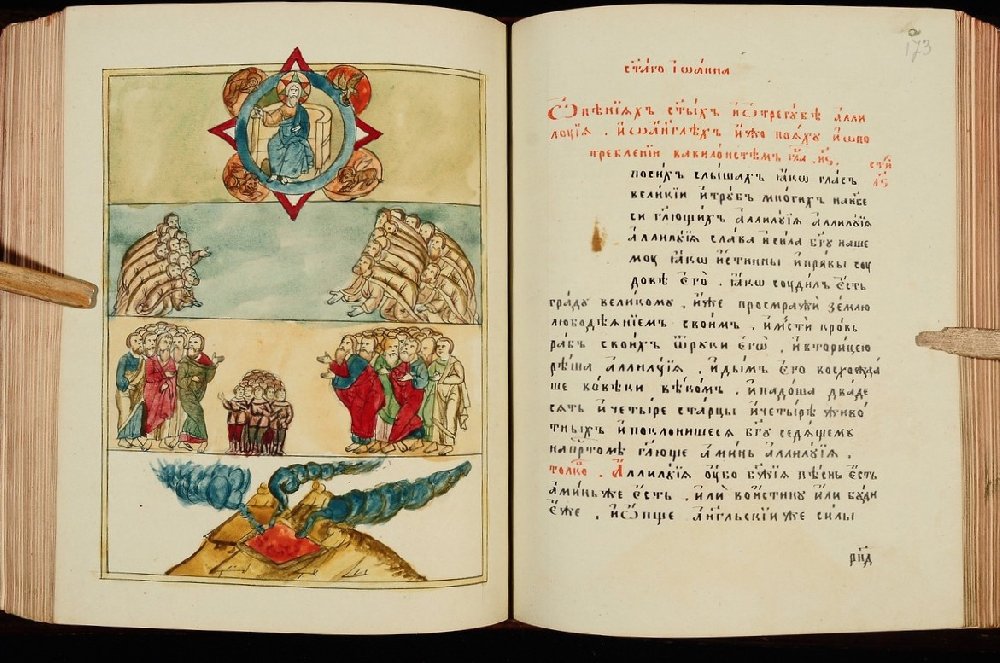 173
ст҃аго і҆ѡа́нна
Ѡ҆ пѣ́нїихъ ст҃ы́хъ и҆ ѡ҆ трегꙋ́бѣ а҆лли
лꙋїа . и҆ ѡ҆ а҆́нг҃лѣхъ и҆̀же поѧ́хꙋ и҆ ѡ҆ во
преблении вавилонстѣмъ
посихъ слы́шахъ ꙗ҆́кѡ гла́съ
вели́кїи и҆ трꙋ́бъ мно́гихъ на нб҃е
си гл҃ющихъ а҆ллилꙋ́їа а҆ллилꙋ́їа
а҆ллилꙋ́їа сла́ва и си́ла бг҃ꙋ на́ше
мꙋ ꙗ҆́кѡ и҆́стинны и҆ пра́вы сꙋ
до́ве є҆гѡ̀ . ꙗ҆́кѡ сꙋди́лъ є҆́сть
гра́дꙋ вели́комꙋ . и҆́же просмради́ зе́млю
любодѣѧ́нїемъ свои́мъ . и҆ мсти́ кро́вь
ра́бъ свои́хъ ѿ рꙋки́ є҆гѡ̀ . и҆ вторицею
рѣ́ша а҆ллилꙋ́їа . и҆ ды́мъ є҆гѡ̀ восхожда́
ше во вѣ́ки вѣ́комъ . и҆ падо́ша два́де
сѧть и҆ четы́ре ста́рцы и҆ четы́рѣ живо́
тныхъ и҆ поклони́шесѧ бг҃ꙋ сѣдѧ́щемꙋ
на прⷭ҇то́мѣ гл҃юще а҆ми́нь а҆ллилꙋ́їа .
толко́в . А҆ллилꙋ́їа ꙋ҆́бо бж҃їѧ пѣ́снь є҆́сть
а҆ми́нь же є҆́сть . и҆лѝ вои́стинꙋ и҆ли бꙋ́ди
є҆́же . и҆ ѡ҆́пще а҆́нг҃льскїи же си́лы
рн҃д